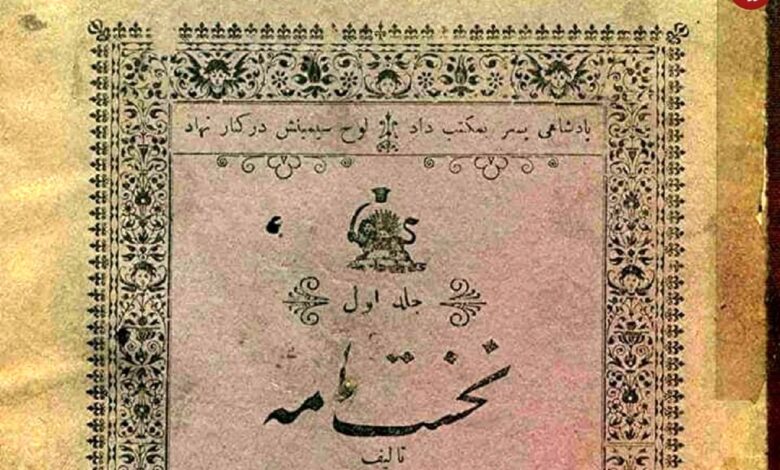 پادشاهی پسر بمکتب داد لوح سیمینش در کنار نهاد
جلد اول
نخستنامه
تالیف